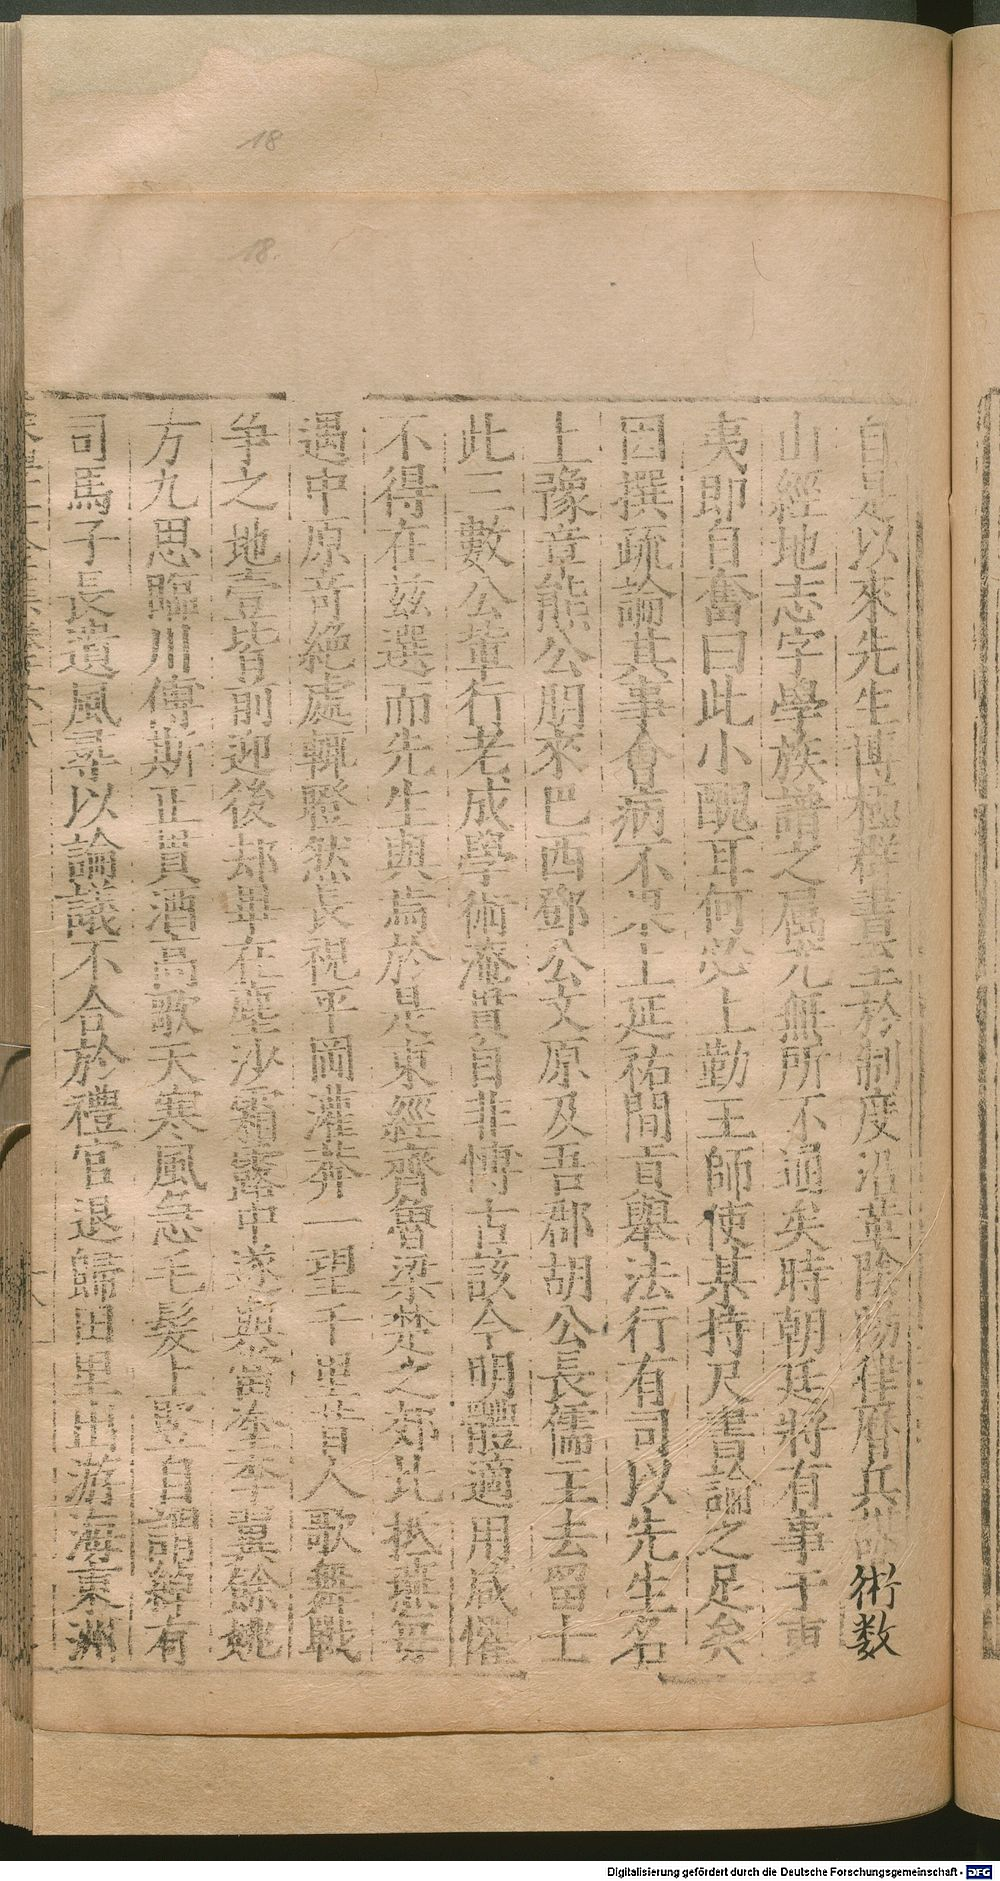 18
18.
自是以來先生博極群書至於制度沿革陰陽律曆兵 術数
山經地志字學族譜之屬尤無所不通矣時朝廷將有事于東
夷即自奮曰此小醜耳何必上勤王師使某持尺書論之足矣
因撰疏論其事會病不果上延祐間貢舉法行有司以先生名
上豫章熊公朋來巴西鄧公文原及吾郡胡公長儒王去留士
此三數公軰行老成學術淹貫自非慱古該今明體適用咸懼
不得在兹選而先生與焉於是東經齊魯梁楚之郊北燕無
遇中原奇絶處輒瞪然長視平岡灌莽一望千里昔人歌舞戰
争之地壹皆前迎後却畢在塵沙霜露中遂與李冀餘姚
方九思臨川傅斯正買酒高歌天寒風急毛髮上竪自謂綽有
司馬子長遺風尋以論議不合於禮官退歸田里出游海東洲
Digitalisierung gefördert durch die Deutsche Forschungsgemeinschaft - DFG